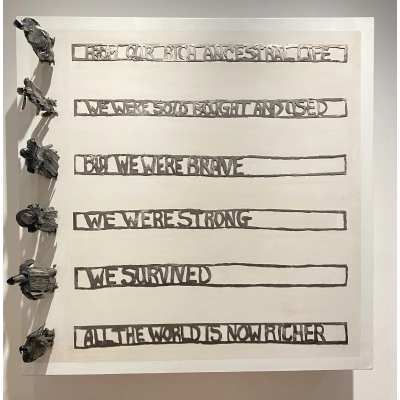 FROM OUR RICH ANCESTRAL LIFE
WE WERE SOLD BOUGHT AND USED
BUT WE WERE BRAVE
WE WERE STRONG
WE SURVIVED
ALL THE WORLD IS NOW RICHER